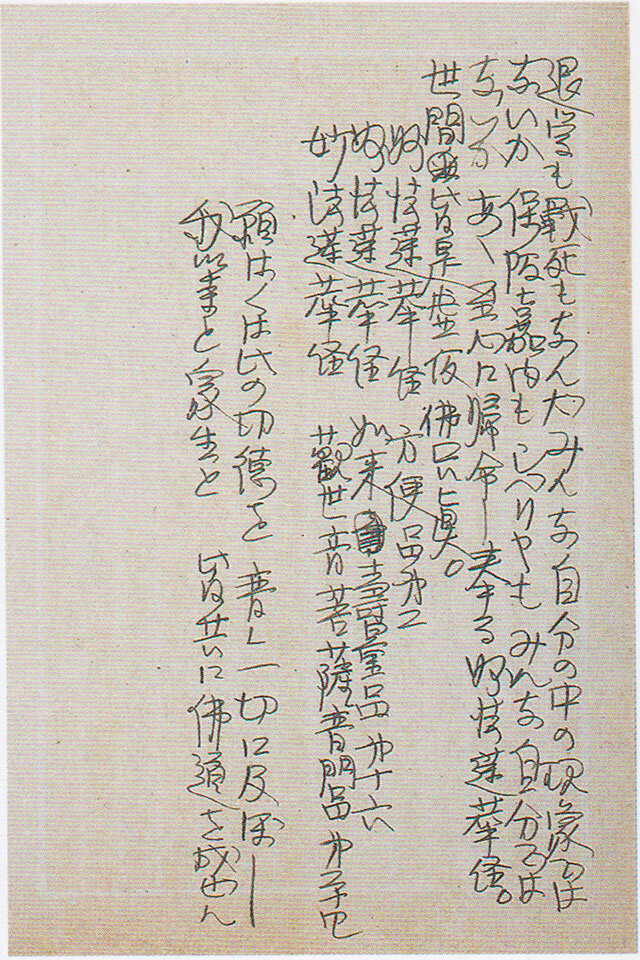 退学も戦死もなんだみんな自分の中の現象では
ないか 保阪嘉内もシベリヤもみんな自分では
ないか あゝ至心に帰命し奉る妙法蓮華経。
世間皆是虚仮佛只眞。
妙法蓮華経 方便品第二
妙法蓮華経 如来壽量品第十六
妙法蓮華経 観世音菩薩普門品
願はくは此の功徳を 普く一切に及ぼし
我等と衆生と 皆共に佛道を成ぜん